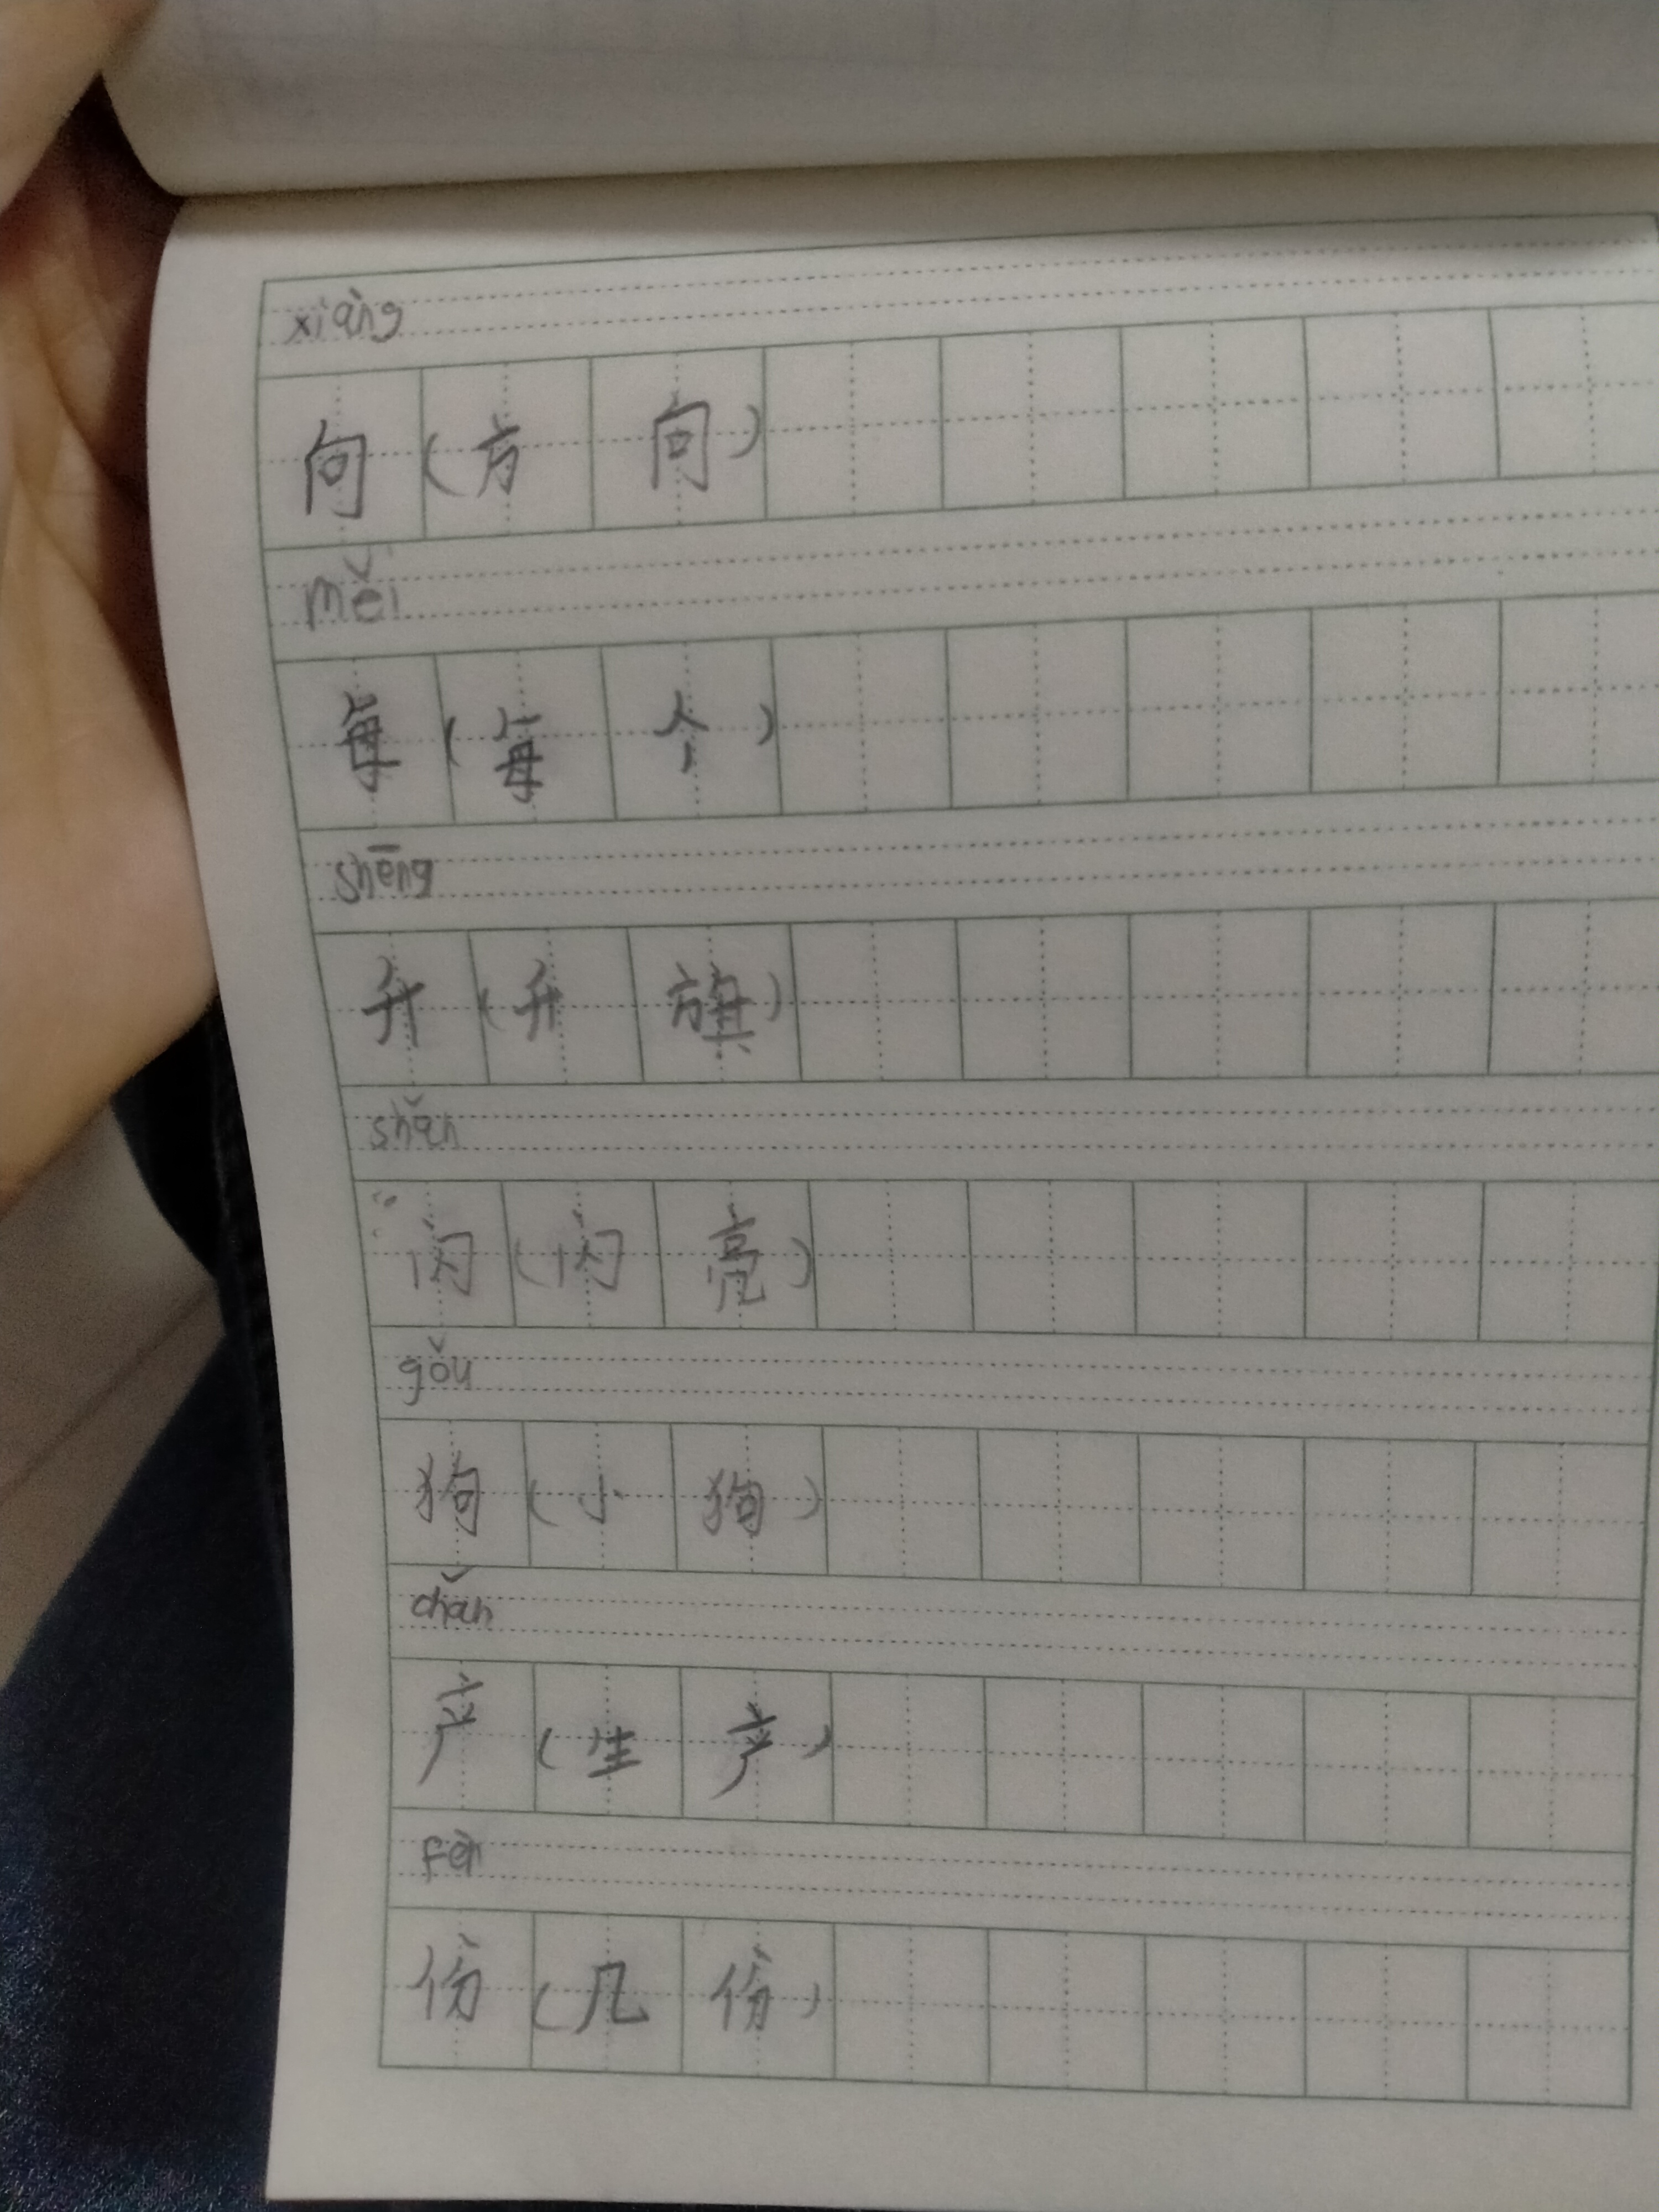 xiàng
向(方向)
měi
每(每个)
shēng
升(升旗)
shǎn
闪(闪亮)
gǒu
狗(小狗)
chǎn
产(生产)
fèn
份(几份)